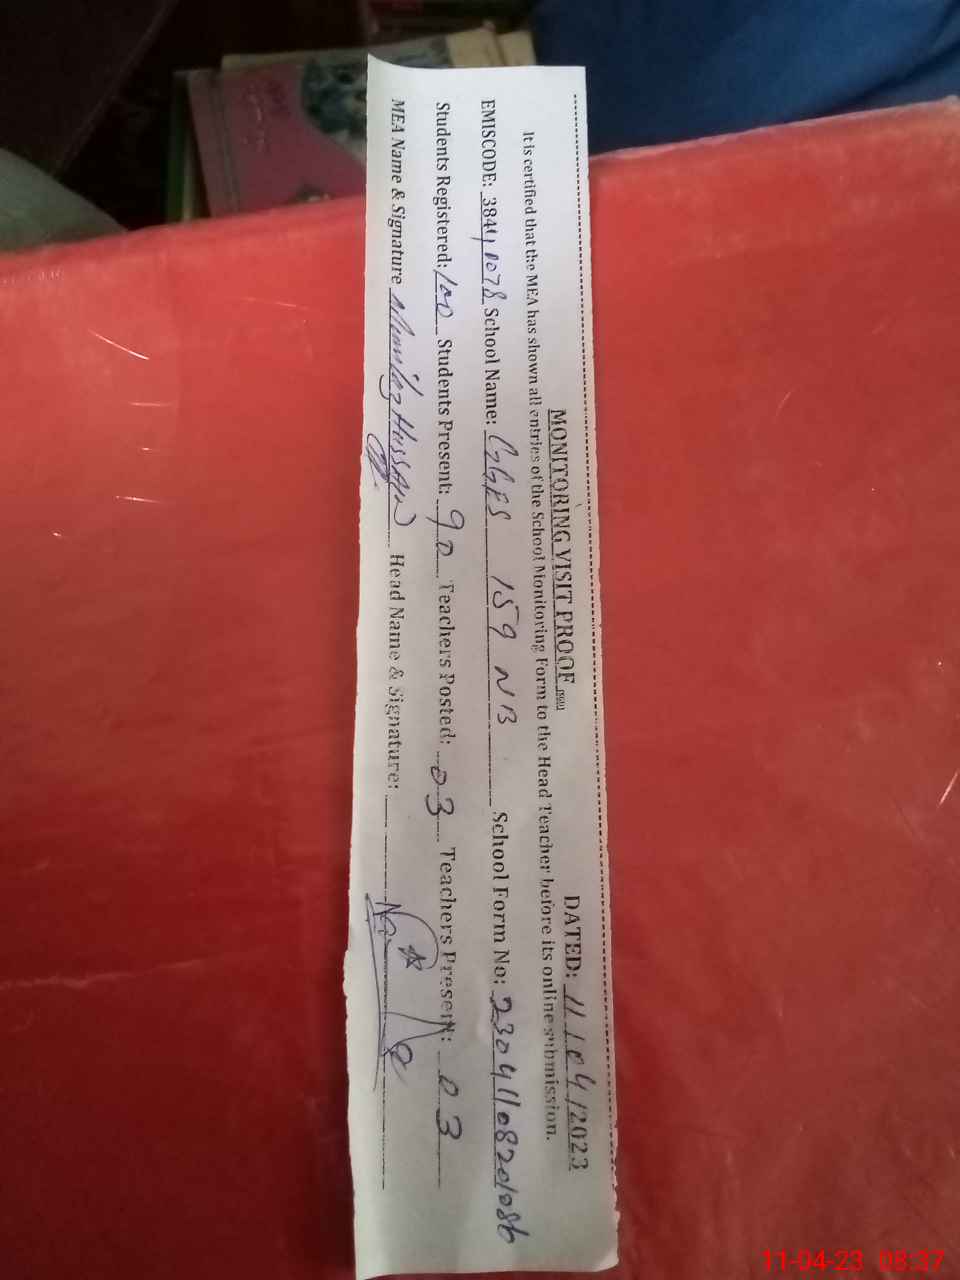 MONITORING VISIT PROOF DATED: 11/04/2023
It is certified that the MEA has shown all entries of the School Monitoring Form to the Head Teacher before its online submission.
EMISCODE: 38441078 School Name: GGES 159 NB School Form No: 23041108201086
Students Registered: 100 Students Present: 90 Teachers Posted: 03 Teachers Present: 03
MEA Name & Signature Hussain Head Name & Signature:
11-04-23 08:37